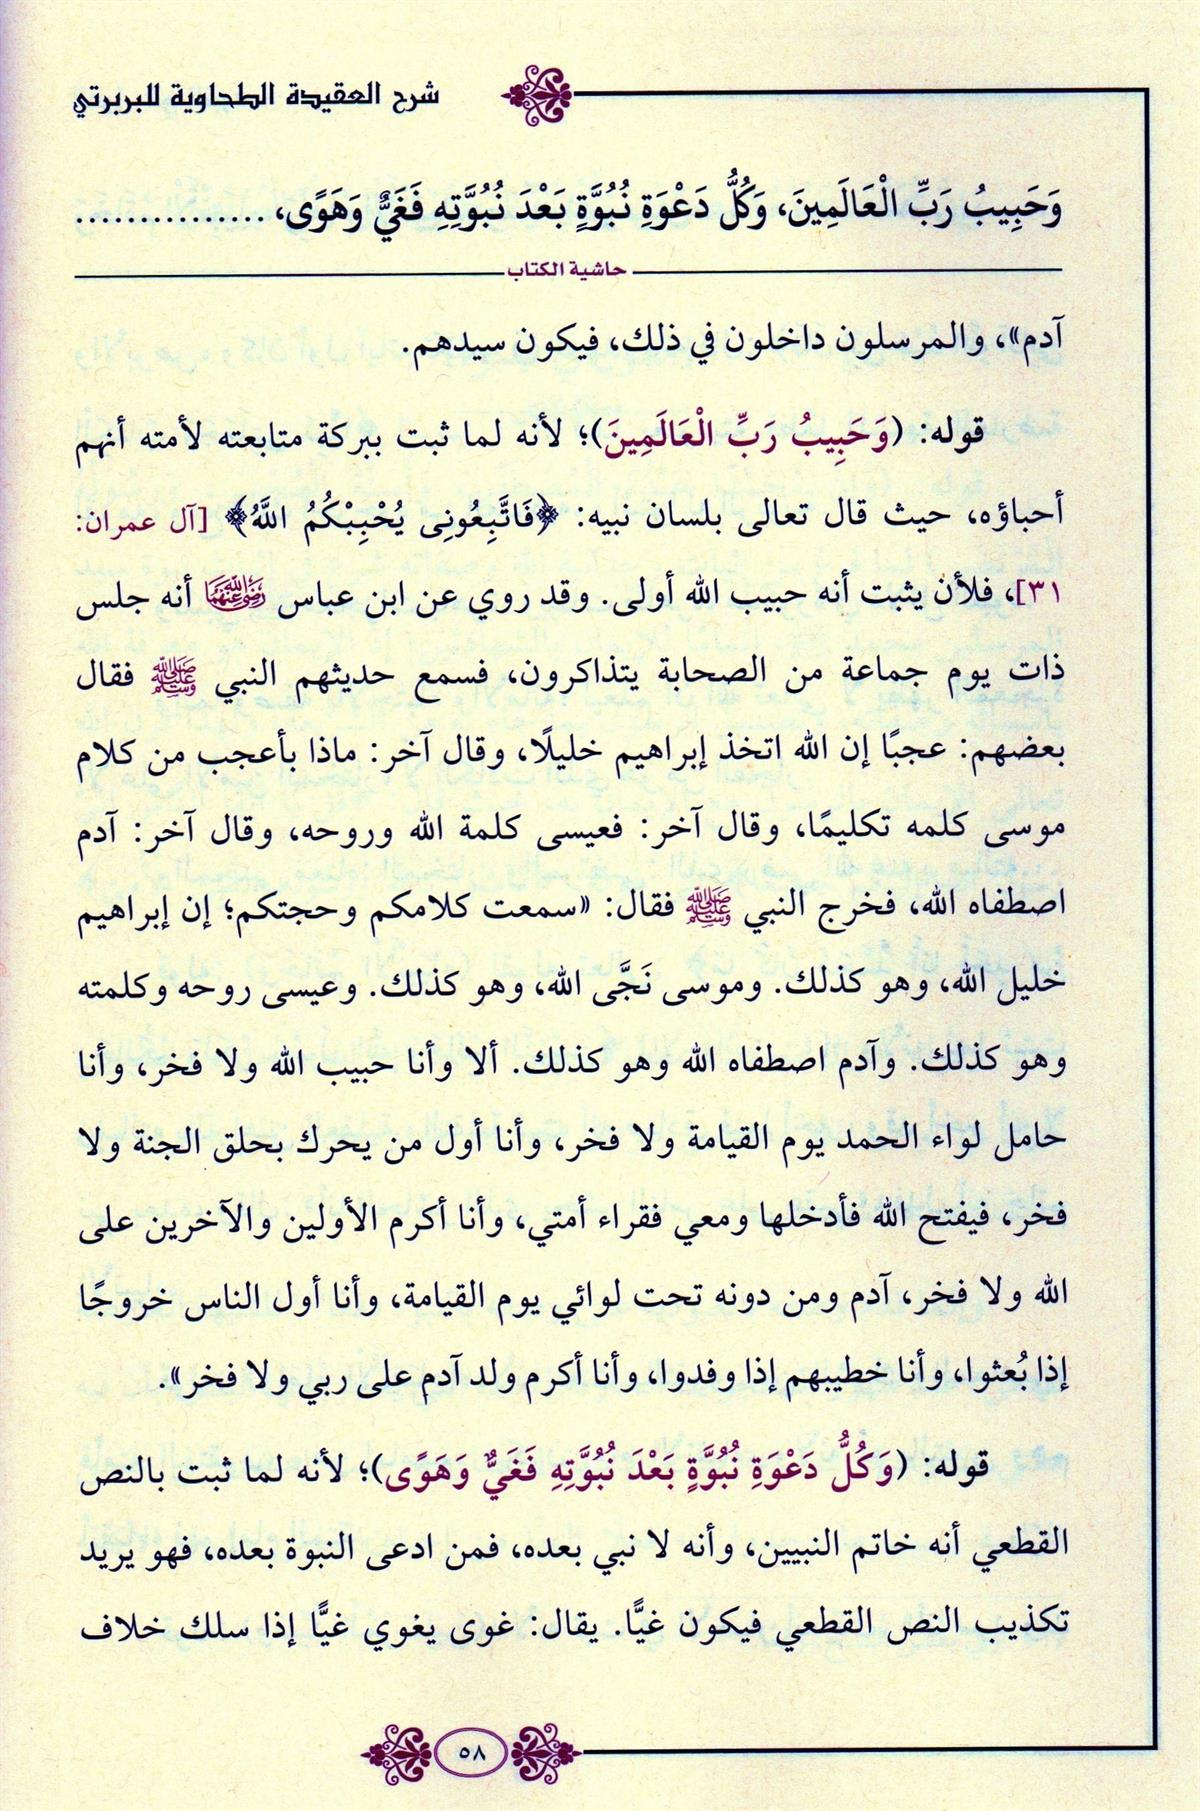 شرح العقيدة الطحاوية للبربرتي
وَحَبِيبُ رَبِّ الْعَالَمِينَ، وَكُلُّ دَعْوَةِ نُبُوَّةٍ بَعْدَ نُبُوَّتِهِ فَغَيٌّ وَهَوًى، ...............
حاشية الكتاب
آدم»، والمرسلون داخلون في ذلك، فيكون سيدهم.
قوله: (وَحَبِيبُ رَبِّ الْعَالَمِينَ)؛ لأنه لما ثبت ببركة متابعته لأمته أنهم
أحباؤه، حيث قال تعالى بلسان نبيه: ﴿فَاتَّبِعُونِى يُحْبِبْكُمُ اللَّهُ﴾ [آل عمران:
٣١]، فلأن يثبت أنه حبيب الله أولى. وقد روي عن ابن عباس رَضِيَ اللَّهُ عَنْهُمَا أنه جلس
ذات يوم جماعة من الصحابة يتذاكرون، فسمع حديثهم النبي ﷺ فقال
بعضهم: عجبًا إن الله اتخذ إبراهيم خليلًا، وقال آخر: ماذا بأعجب من كلام
موسى كلمه تكليمًا، وقال آخر: فعيسى كلمة الله وروحه، وقال آخر: آدم
اصطفاه الله، فخرج النبي ﷺ فقال: «سمعت كلامكم وحجتكم؛ إن إبراهيم
خليل الله، وهو كذلك. وموسى نَجَّى الله، وهو كذلك. وعيسى روحه وكلمته
وهو كذلك. وآدم اصطفاه الله وهو كذلك. ألا وأنا حبيب الله ولا فخر، وأنا
حامل لواء الحمد يوم القيامة ولا فخر، وأنا أول من يحرك بحلق الجنة ولا
فخر، فيفتح الله فأدخلها ومعي فقراء أمتي، وأنا أكرم الأولين والآخرين على
الله ولا فخر، آدم ومن دونه تحت لوائي يوم القيامة، وأنا أول الناس خروجًا
إذا بُعثوا، وأنا خطيبهم إذا وفدوا، وأنا أكرم ولد آدم على ربي ولا فخر».
قوله: (وَكُلُّ دَعْوَةِ نُبُوَّةٍ بَعْدَ نُبُوَّتِهِ فَغَيٌّ وَهَوًى)؛ لأنه لما ثبت بالنص
القطعي أنه خاتم النبيين، وأنه لا نبي بعده، فمن ادعى النبوة بعده، فهو يريد
تكذيب النص القطعي فيكون غيًّا. يقال: غوى يغوي غيًّا إذا سلك خلاف
٥٨